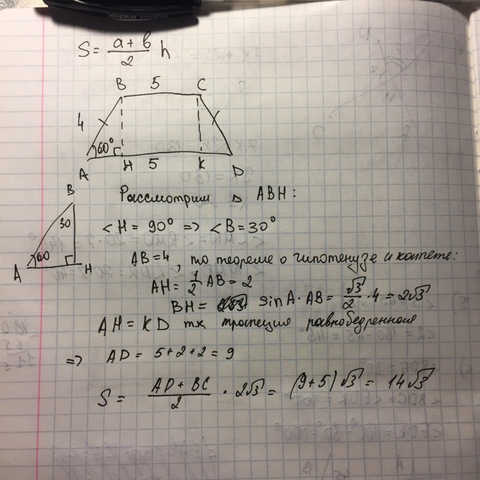 S = (a + b)/2 h
B 5 C
4
60°
A H 5 K D
B
30
60
A H
Рассмотрим △ ABH:
<H = 90° => <B = 30°
AB = 4, то теореме о гипотенузе и катете:
AH = 1/2 AB = 2
BH = sin A · AB = √3/2 · 4 = 2√3
AH = KD тк трапеция равнобедренная
=> AD = 5+2+2 = 9
S = (AD + BC)/2 · 2√3 = (9+5)√3 = 14√3